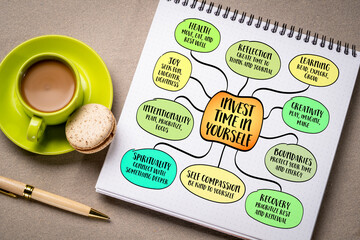 HEALTH
MOVE, EAT, AND
REST WELL
REFLECTION
CREATE TIME TO
THINK AND JOURNAL
LEARNING
READ, EXPLORE,
GROW
JOY
SEEK FUN,
LAUGHTER,
LIGHTNESS
INVEST
TIME IN
YOURSELF
CREATIVITY
PLAY, IMAGINE,
MAKE
INTENTIONALITY
PLAN, PRIORITIZE,
FOCUS
BOUNDARIES
PROTECT YOUR TIME
AND ENERGY
SPIRITUALITY
CONNECT WITH
SOMETHING DEEPER
SELF COMPASSION
BE KIND TO YOURSELF
RECOVERY
PRIORITIZE REST
AND RENEWAL